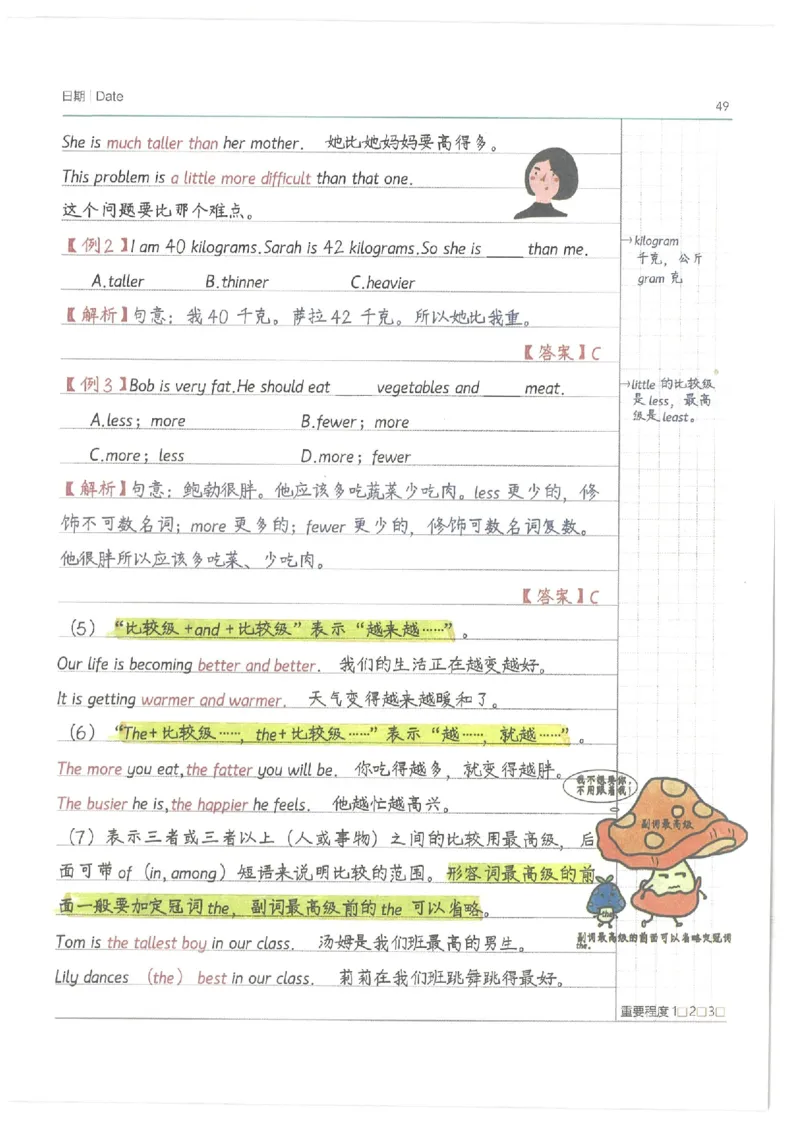 日期 Date
49
She is much taller than her mother. 她比她妈妈要高得多。
This problem is a little more difficult than that one.
这个问题要比那个难点。
【例2】I am 40 kilograms.Sarah is 42 kilograms.So she is ____ than me.
A.taller B.thinner C.heavier
【解析】句意：我40 千克。萨拉42 千克。所以她比我重。
【答案】C
【例3】Bob is very fat.He should eat ____ vegetables and ____ meat.
A.less；more B.fewer；more
C.more；less D.more；fewer
【解析】句意：鲍勃很胖。他应该多吃蔬菜少吃肉。less 更少的，修
饰不可数名词；more 更多的；fewer 更少的，修饰可数名词复数。
他很胖所以应该多吃菜、少吃肉。
【答案】C
（5）“比较级+and+比较级”表示“越来越……”。
Our life is becoming better and better. 我们的生活正在越变越好。
It is getting warmer and warmer. 天气变得越来越暖和了。
（6）“The+比较级……，the+比较级……”表示“越……，就越……”。
The more you eat,the fatter you will be. 你吃得越多，就变得越胖。
The busier he is,the happier he feels. 他越忙越高兴。
（7）表示三者或三者以上（人或事物）之间的比较用最高级，后
面可带of（in,among）短语来说明比较的范围。形容词最高级的前
面一般要加定冠词the，副词最高级前的the 可以省略。
Tom is the tallest boy in our class. 汤姆是我们班最高的男生。
Lily dances （the） best in our class. 莉莉在我们班跳舞跳得最好。
→kilogram
千克，公斤
gram 克
→little 的比较级
是less，最高
级是least。
我不想要你，
不用跟着我！
副词最高级
the
副词最高级的前面可以省略定冠词
the。
重要程度 1□2□3□